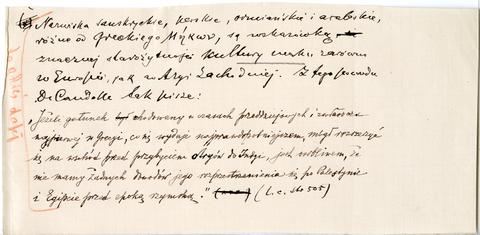 Nazwiska sanskryckie, perskie, ormiańskie i arabskie,
różne od greckiego Μήκων, są wskazówką
znacznej starożytności kultury maku zarówno
w Europie, jak w Azyi Zachodniej. Z tego powodu
DeCandolle tak pisze:
„Jeżeli gatunek był chodowany w czasach przeddziejowych i zwłaszcza
najpierwej w Grecyi, co się wydaje najprawdopodobniejszem, mógł rozszerzyć
się na wschód przed przybyciem Aryów do Indyi, jest wątpliwem, że
nie mamy żadnych dowodów jego rozprzestrzenienia się po Palestynie
i Egipcie przed epoką rzymską." (L.c. str 505)